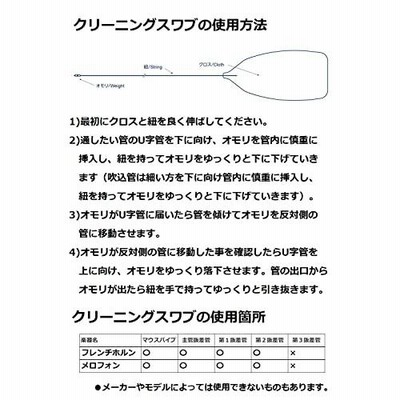 クリーニングスワブの使用方法
紐/String
クロス/Cloth
オモリ/Weight
1)最初にクロスと紐を良く伸ばしてください。
2)通したい管のU字管を下に向け、オモリを管内に慎重に
挿入し、紐を持ってオモリをゆっくりと下に下げていき
ます（吹込管は細い方を下に向け管内に慎重に挿入し、
紐を持ってオモリをゆっくりと下に下げていきます）。
3)オモリがU字管に届いたら管を傾けてオモリを反対側の
管に移動させます。
4)オモリが反対側の管に移動した事を確認したらU字管を
上に向け、オモリをゆっくり落下させます。管の出口から
オモリが出たら紐を手で持ってゆっくりと引き抜きます。
クリーニングスワブの使用箇所
楽器名 マウスパイプ 主管抜差管 第１抜差管 第２抜差管 第３抜差管
フレンチホルン ○ ○ ○ ○ ×
メロフォン ○ ○ ○ ○ ×
●メーカーやモデルによっては使用できないものもあります。